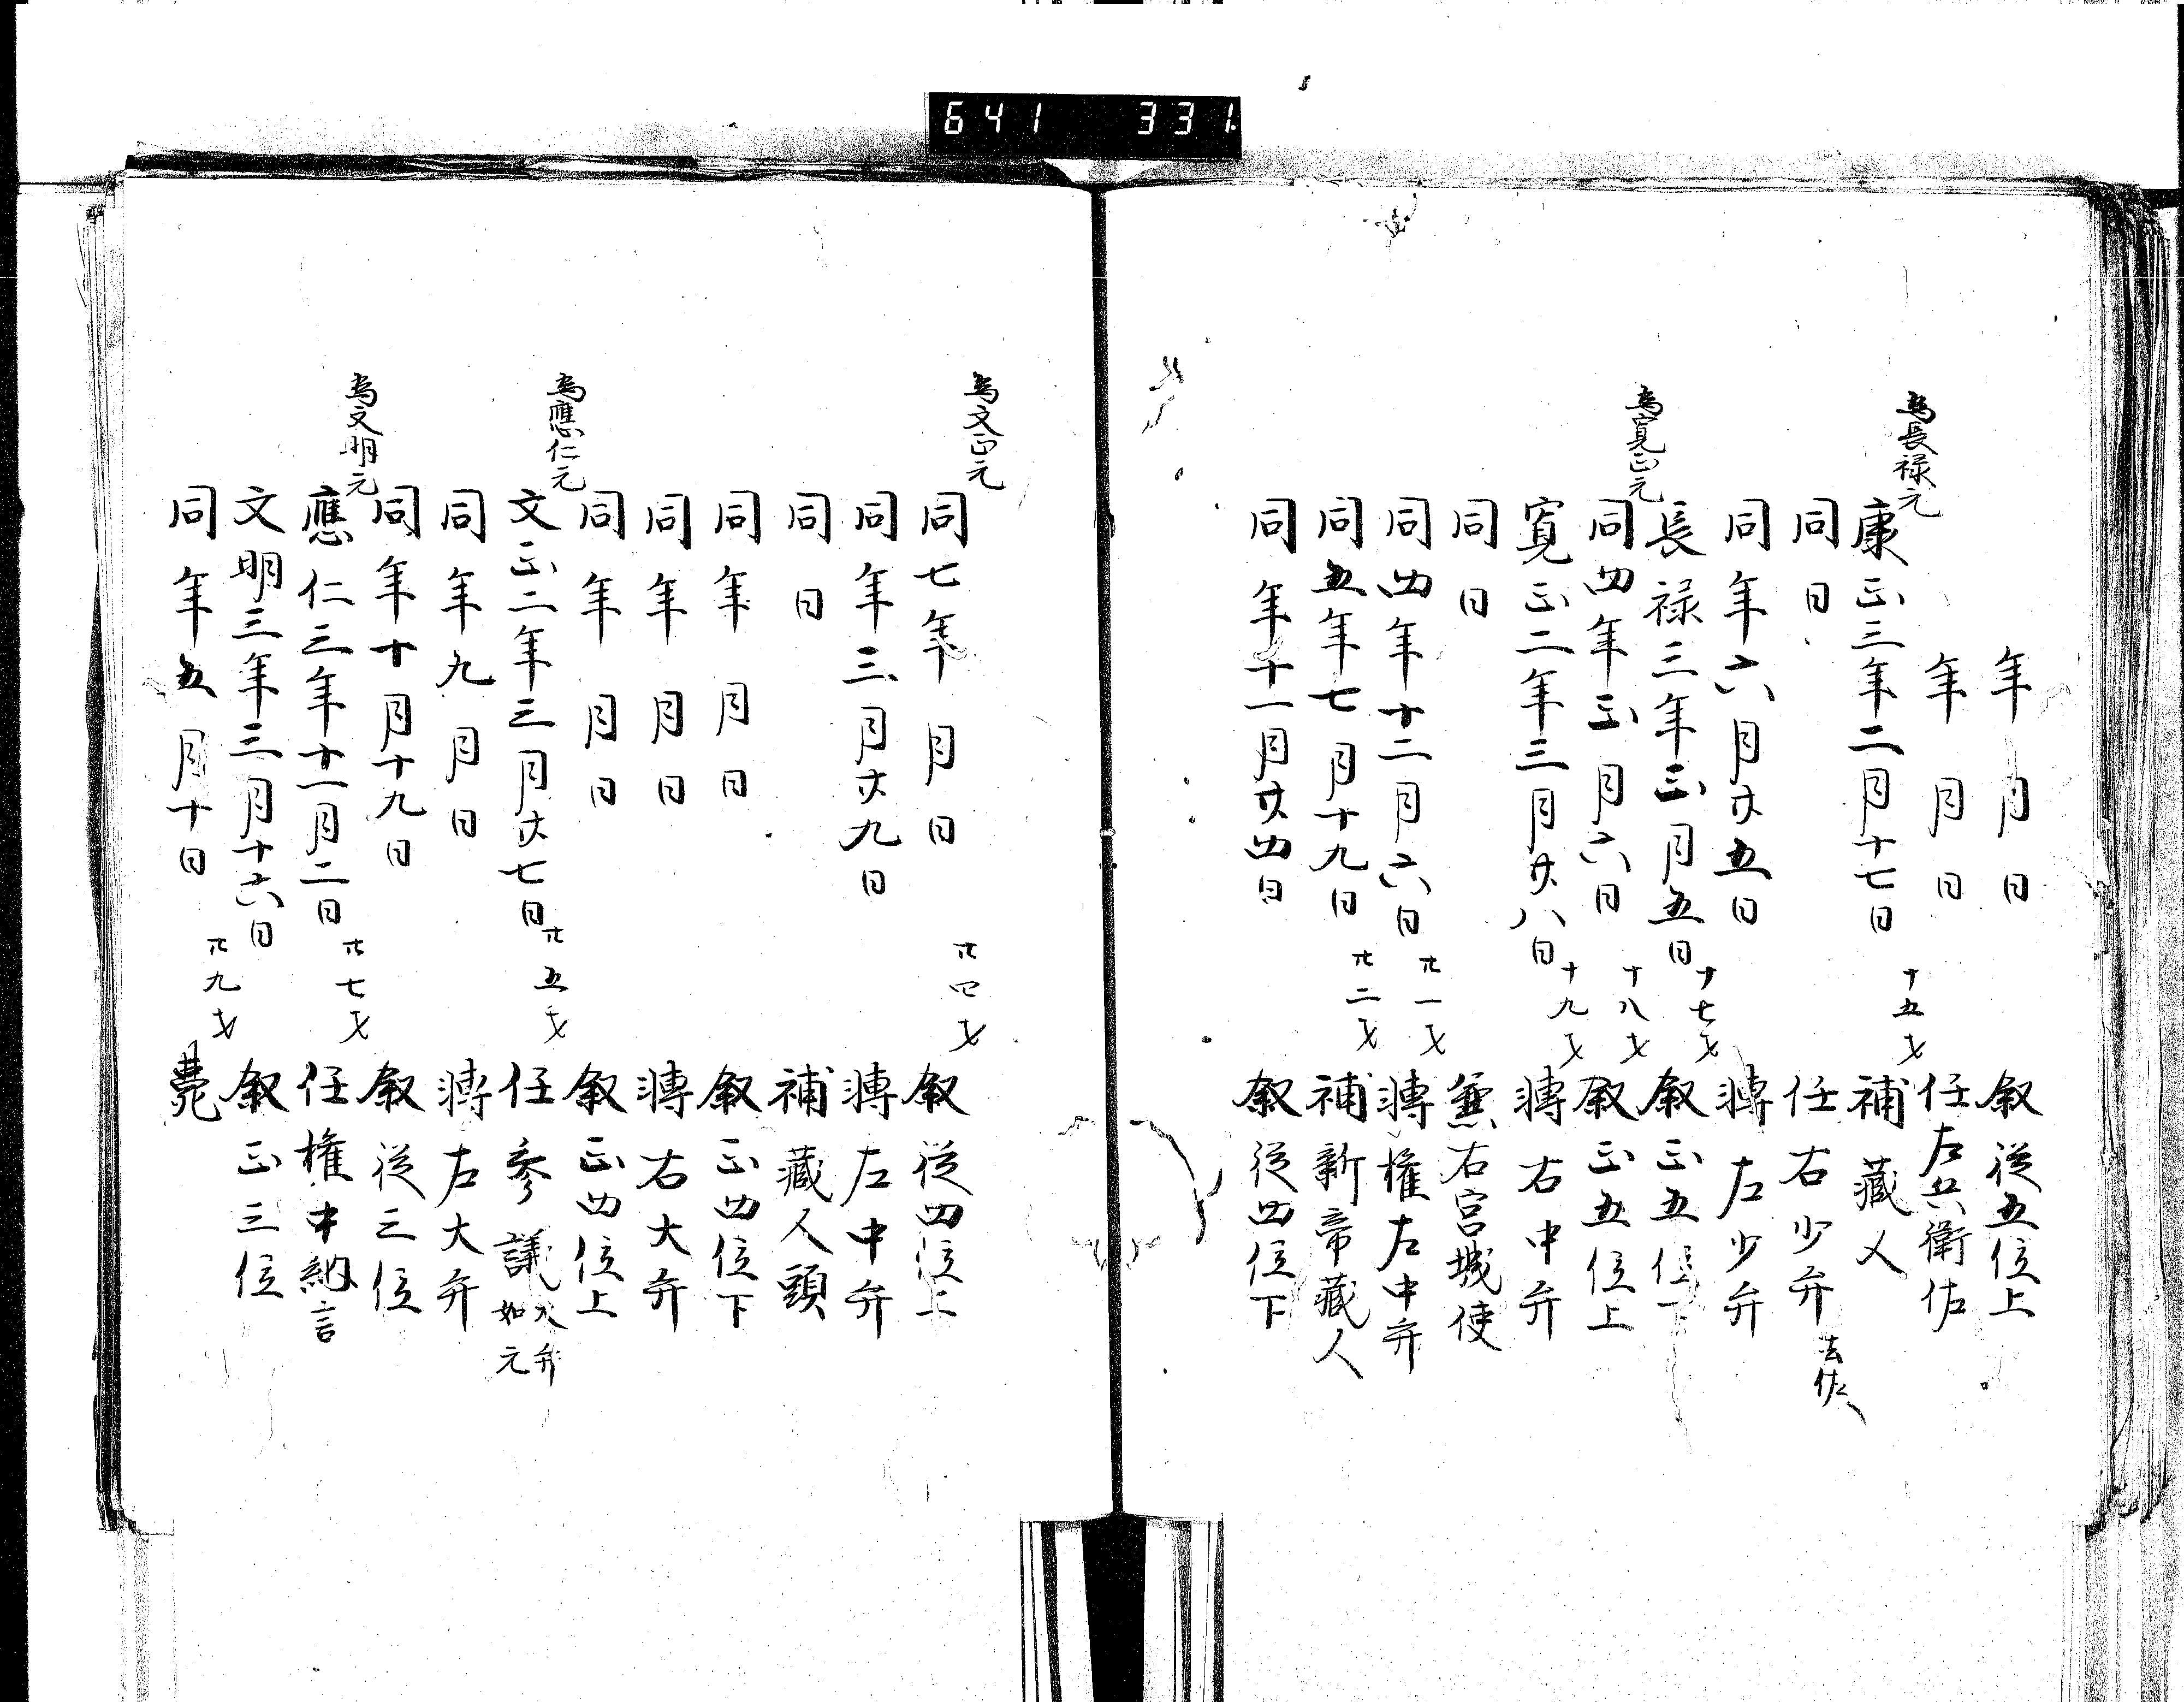 641 331.
年 月 日 叙従五位上
年 月 日 任左兵衛佐
為長禄元
康正三年二月十七日 十五才 補蔵人
同日 任右少弁 去佐
同年六月廿五日 轉左少弁
長禄三年正月五日 十七才 叙正五位下
為寛正元
同四年正月六日 十八才 叙正五位上
寛正二年三月廿八日 十九才 轉右中弁
同日 兼右宮城使
同四年十二月六日 廿一才 轉権左中弁
同五年七月十九日 廿二才 補新帝蔵人
同年十一月廿四日 叙従四位下
為文正元
同七年 月 日 廿四才 叙従四位上
同年三月廿九日 轉左中弁
同日 補蔵人頭
同年 月 日 叙正四位下
同年 月 日 轉右大弁
同年 月 日 叙正四位上
為應仁元
文正二年三月廿七日 廿五才 任参議 大弁如元
同年九月 日 轉左大弁
同年十月十九日 叙従三位
為文明元
應仁三年十一月二日 廿七才 任権中納言
文明三年三月十六日 廿九才 叙正三位
同年五月十日 薨